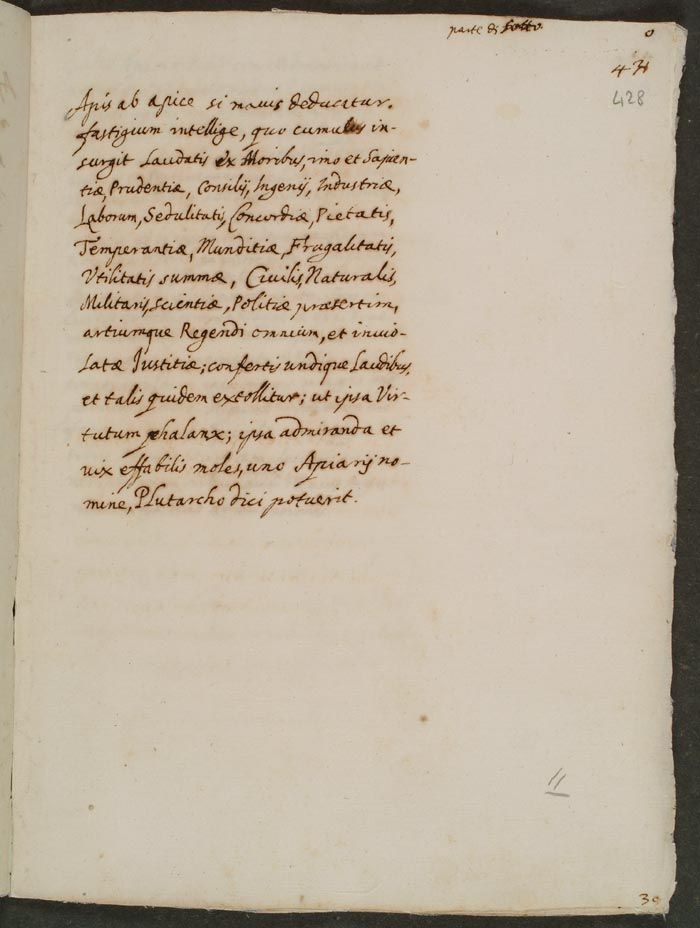 parte di sotto.
0
431
428
Apis ab apice si mauis deducatur.
fastigium intellige, quo cumulus in-
surgit Laudatis ex Moribus, imo et Sapien-
tiæ, Prudentiæ, Consilij, Ingenij, Industriæ,
Laborum, Sedulitatis, Concordiæ, Pietatis,
Temperantiæ, Munditiæ, Frugalitatis,
Vtilitatis summæ, Ciuilis, Naturalis,
Militaris, scientiæ, Politiæ præsertim,
artiumque Regendi omnium, et inuio-
latæ Iustitiæ; confertis undique Laudibus.
et talis quidem extollitur; ut ipsa Vir-
tutum phalanx; ipsa admiranda et
uix effabilis moles, uno Apiarij no-
mine, Plutarcho dici potuerit.
11